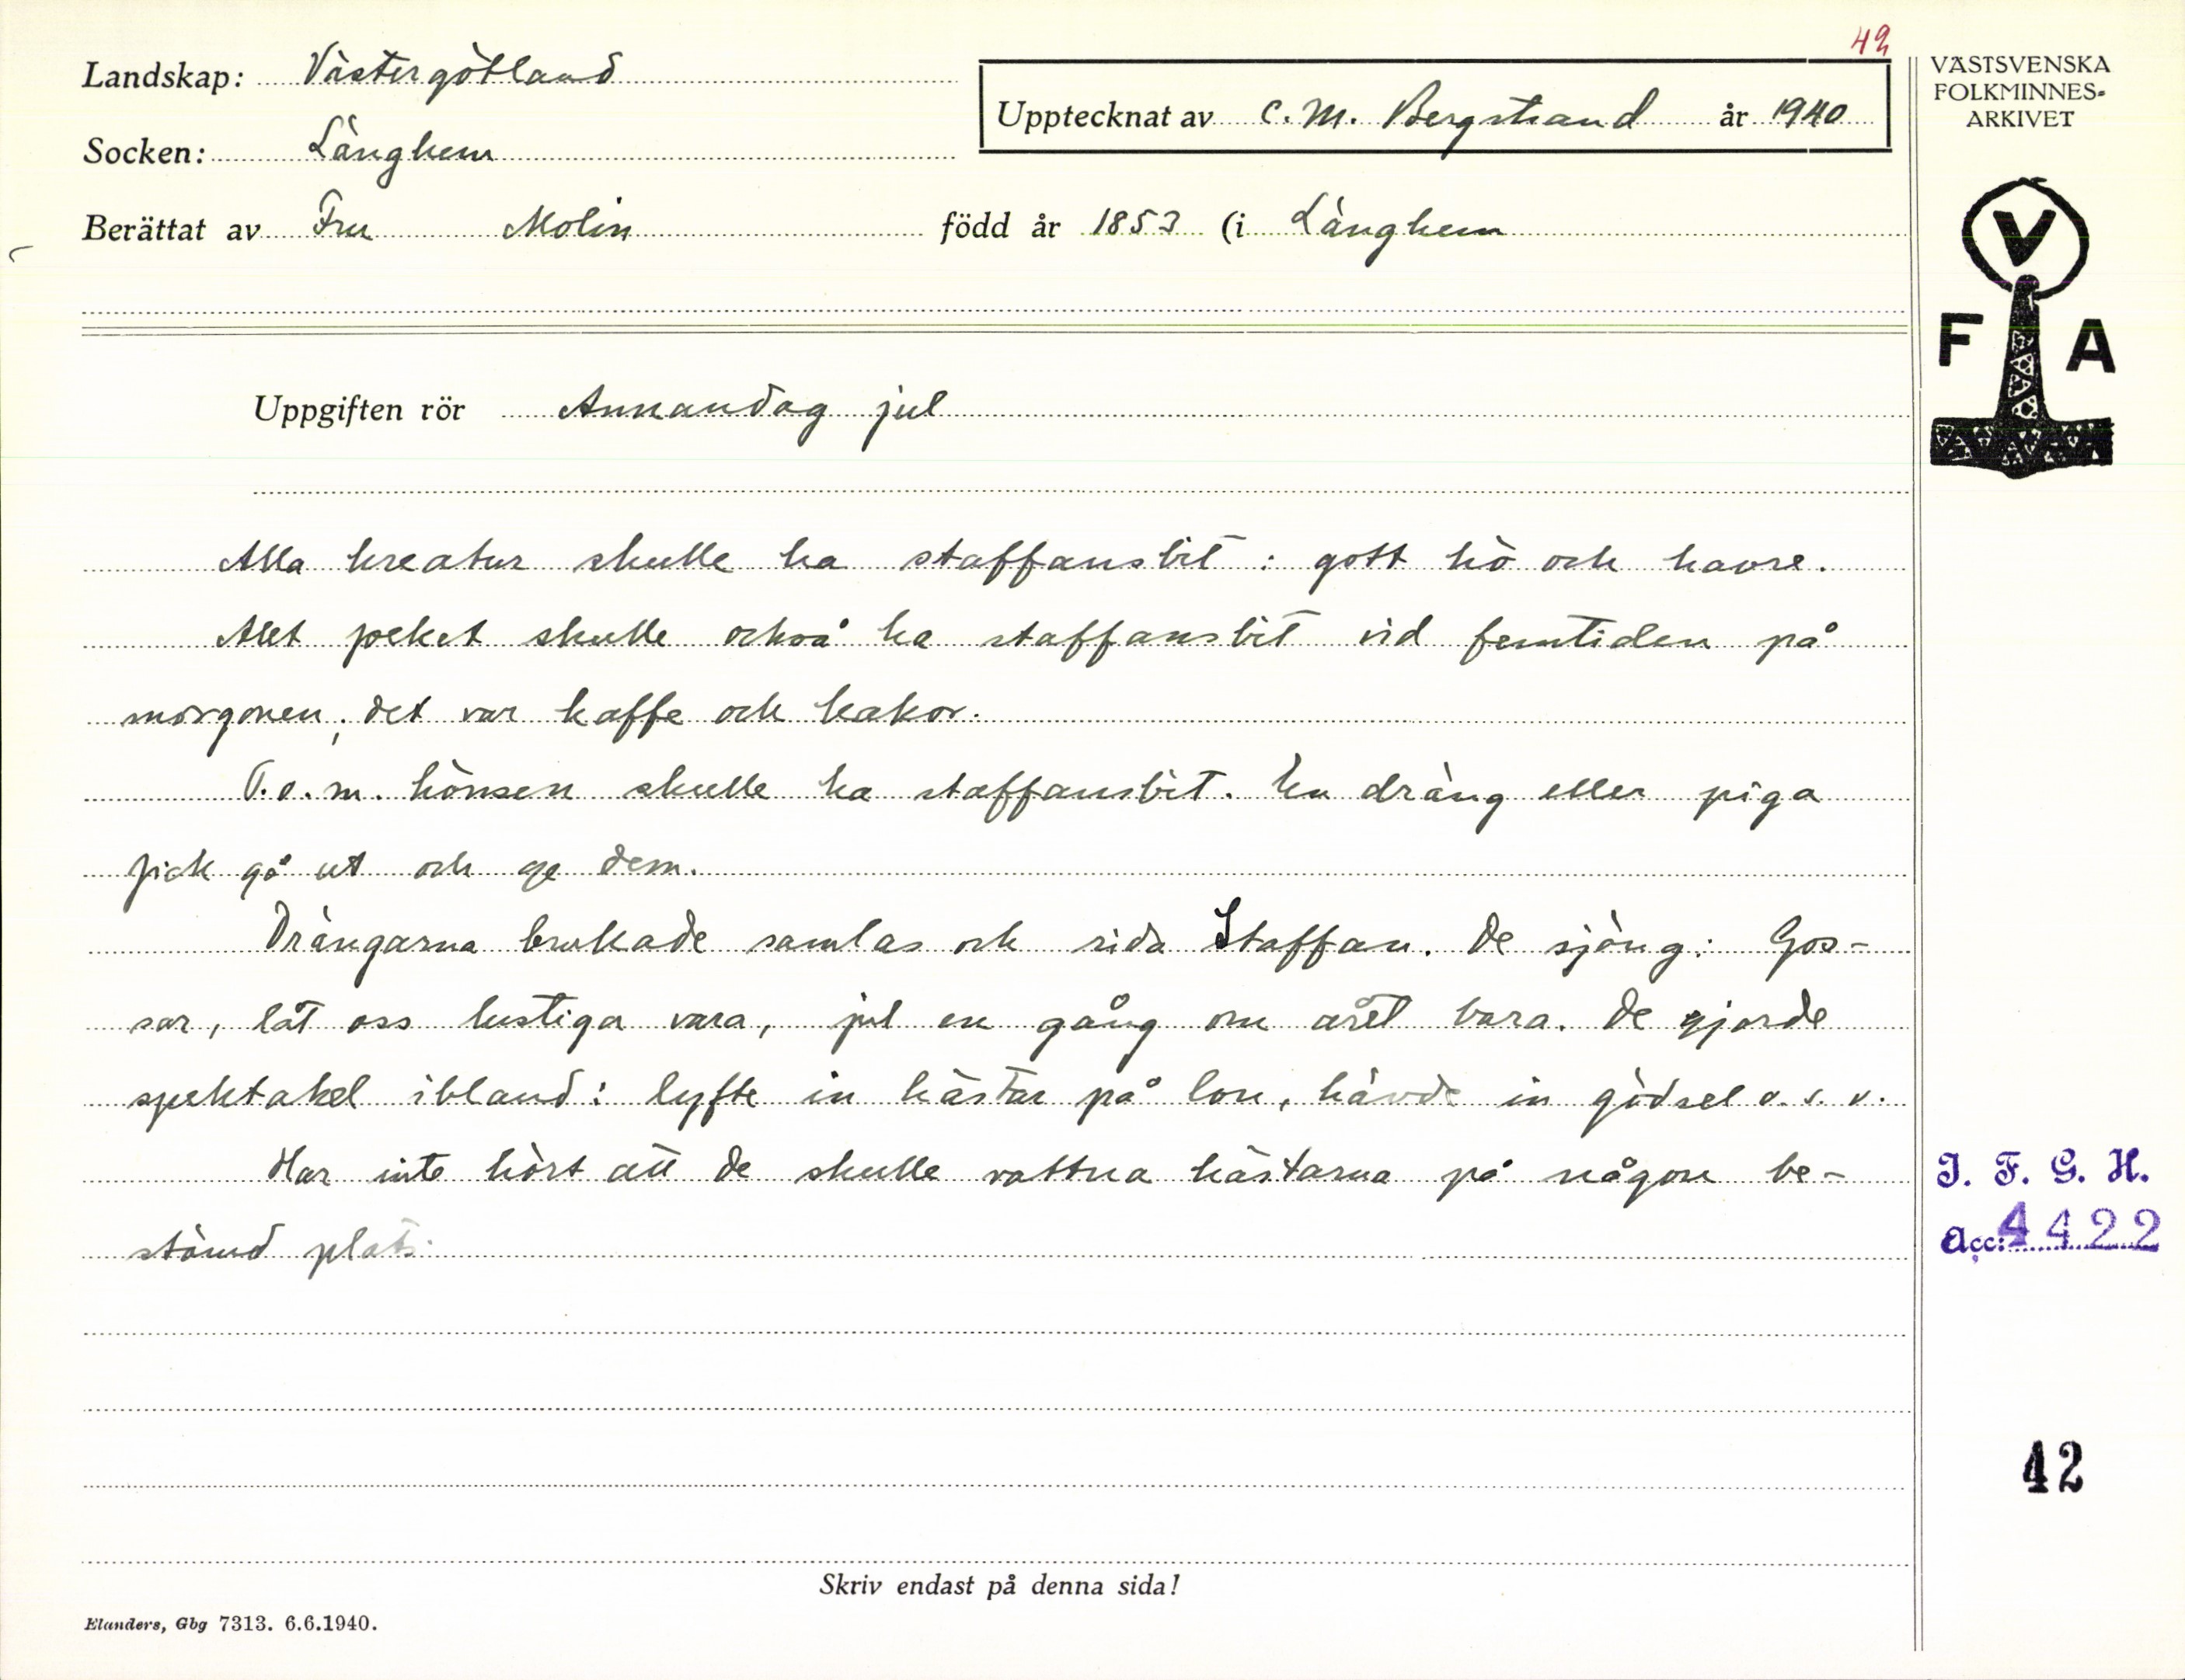 42
Landskap: Västergötland
Upptecknat av C. M. Bergstrand år 1940
Socken: Länghem
Berättat av Fru Molin född år 1853 (i Länghem
VÄSTSVENSKA
FOLKMINNES-
ARKIVET
V
F A
Uppgiften rör Annandag jul
Alla kreatur skulle ha staffansbit: gott hö och havre.
Allt folket skulle också ha staffansbit vid femtiden på
morgonen; det var kaffe och kakor.
T.o.m. hönsen skulle ha staffansbit. En dräng eller piga
fick gå ut och ge dem.
Drängarna brukade samlas och rida Staffan. De sjöng: Gos-
sar, låt oss lustiga vara, jul en gång om året bara. De gjorde
spektakel ibland: lyfte in hästar på lon, hävde in gödsel o.s.v.
Har inte hört att de skulle vattna hästarna på någon be-
stämd plats.
I. F. G. H.
Acc: 4422
42
Skriv endast på denna sida!
Elanders, Gbg 7313. 6.6.1940.